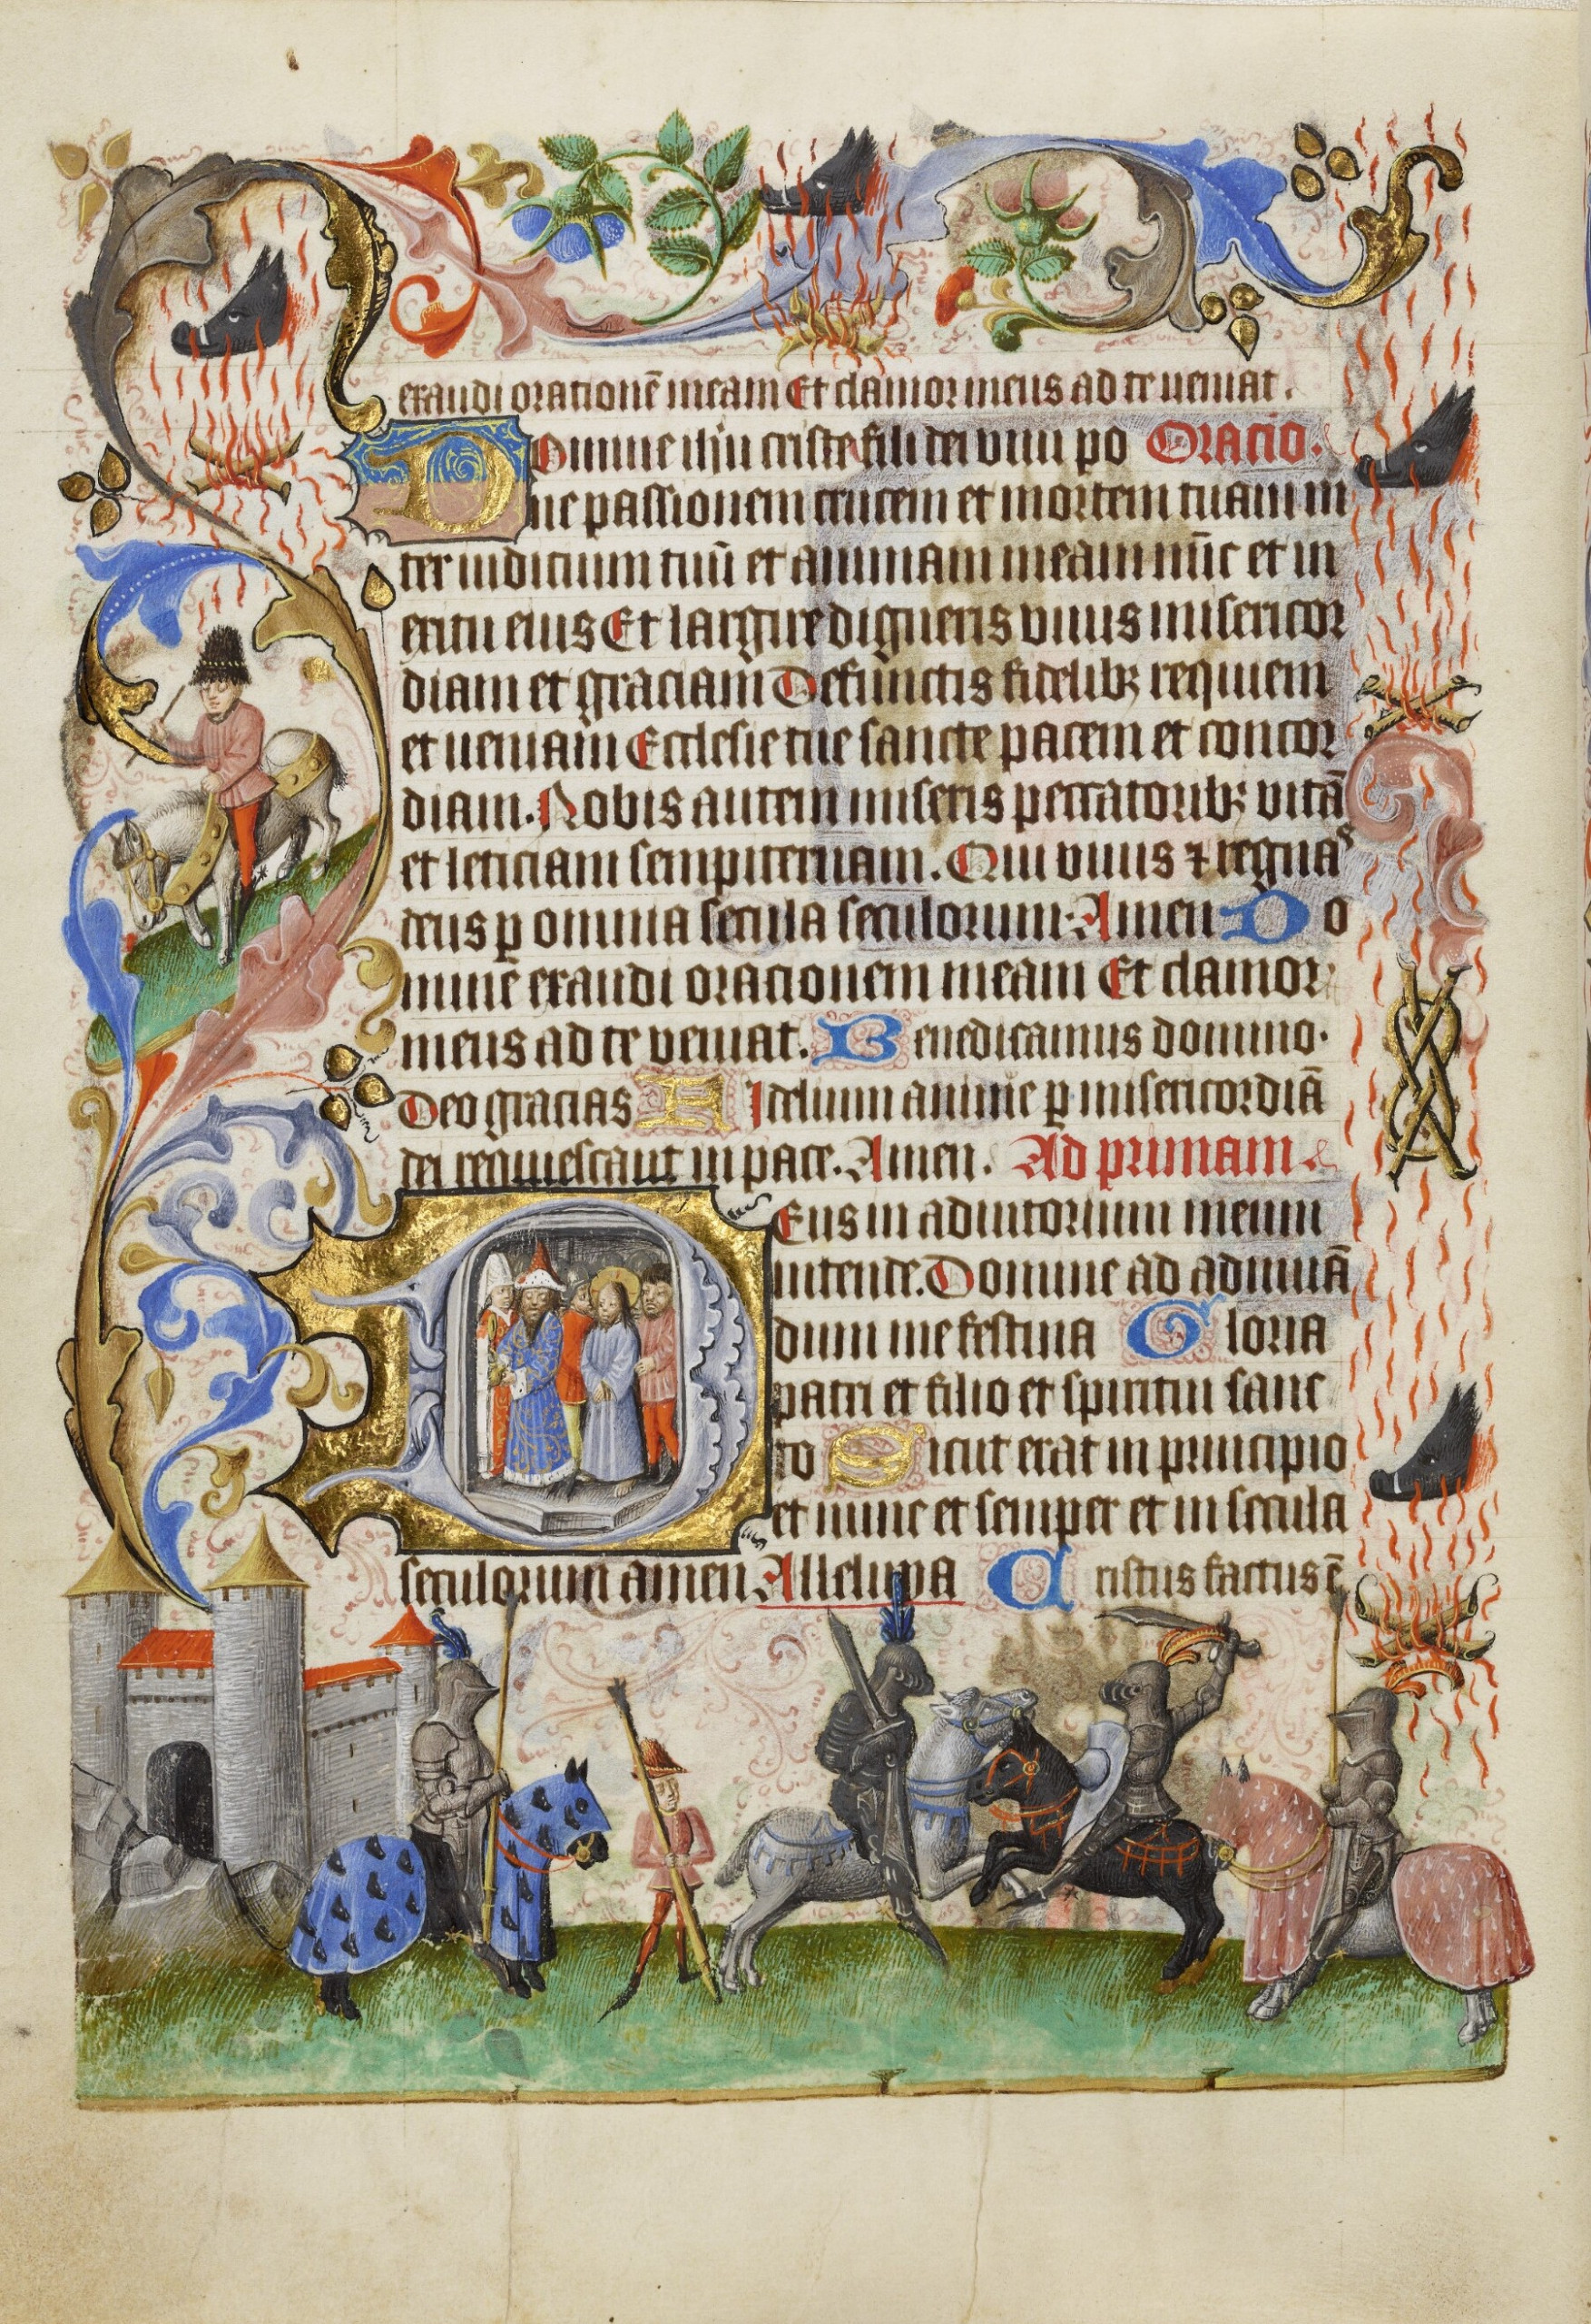 exaudi orationē meam Et clamor meus ad te veniat.
Domine ihu criste fili dei vivi po Oracio.
ne passionem crucem et mortem tuam in
ter iudicium tuū et animam meam nūc et in
exitu eius Et largire digneris vivis misericor
diam et graciam Defunctis fidelibꝫ requiem
et veniam Ecclesie tue sancte pacem et concor
diam. Nobis autem miseris peccatoribꝫ vitā
et leticiam sempiternam. Qui vivis ⁊ regnas
deus ꝑ omnia secula seculorum. Amen Do
mine exaudi oracionem meam Et clamor
meus ad te veniat. Benedicamus domino.
Deo gracias Fidelium anime ꝑ misericordiā
dei requiescant in pace. Amen. Ad primam
Deus in adiutorium meum
intende. Domine ad adiuuā
dum me festina Gloria
patri et filio et spiritui sanc
to Sicut erat in principio
et nunc et semper et in secula
seculorum amen Alleluya Cristus factus ē